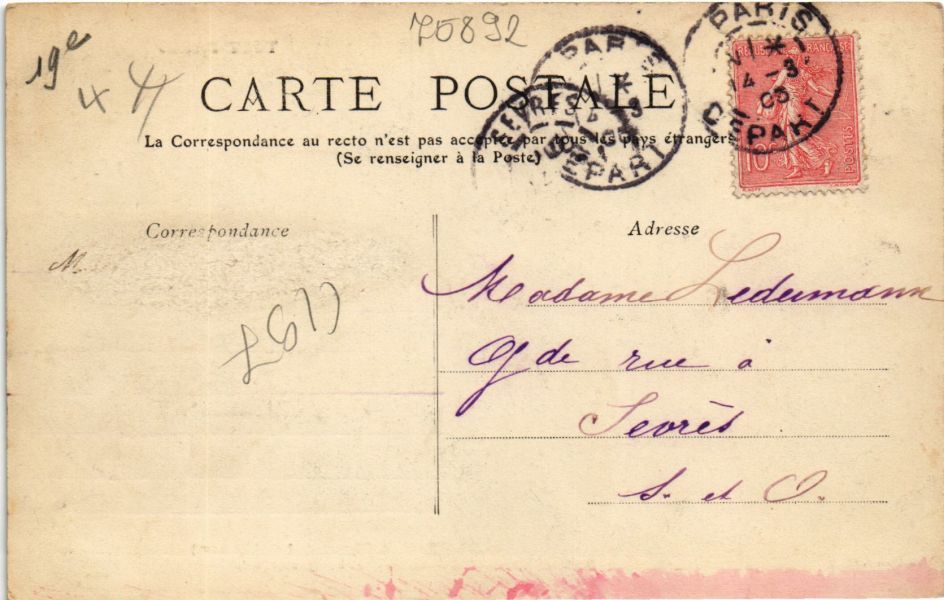 70892
19e
x 4
CARTE POSTALE
La Correspondance au recto n'est pas acceptée par tous les pays étrangers
(Se renseigner à la Poste)
PARIS
DEPART
PARIS
4 - 3
DEPART
REPUBLIQUE FRANÇAISE
10
POSTES
Correspondance
M
Adresse
Madame Ledermann
Gde rue à
Sevrès
S. et O.